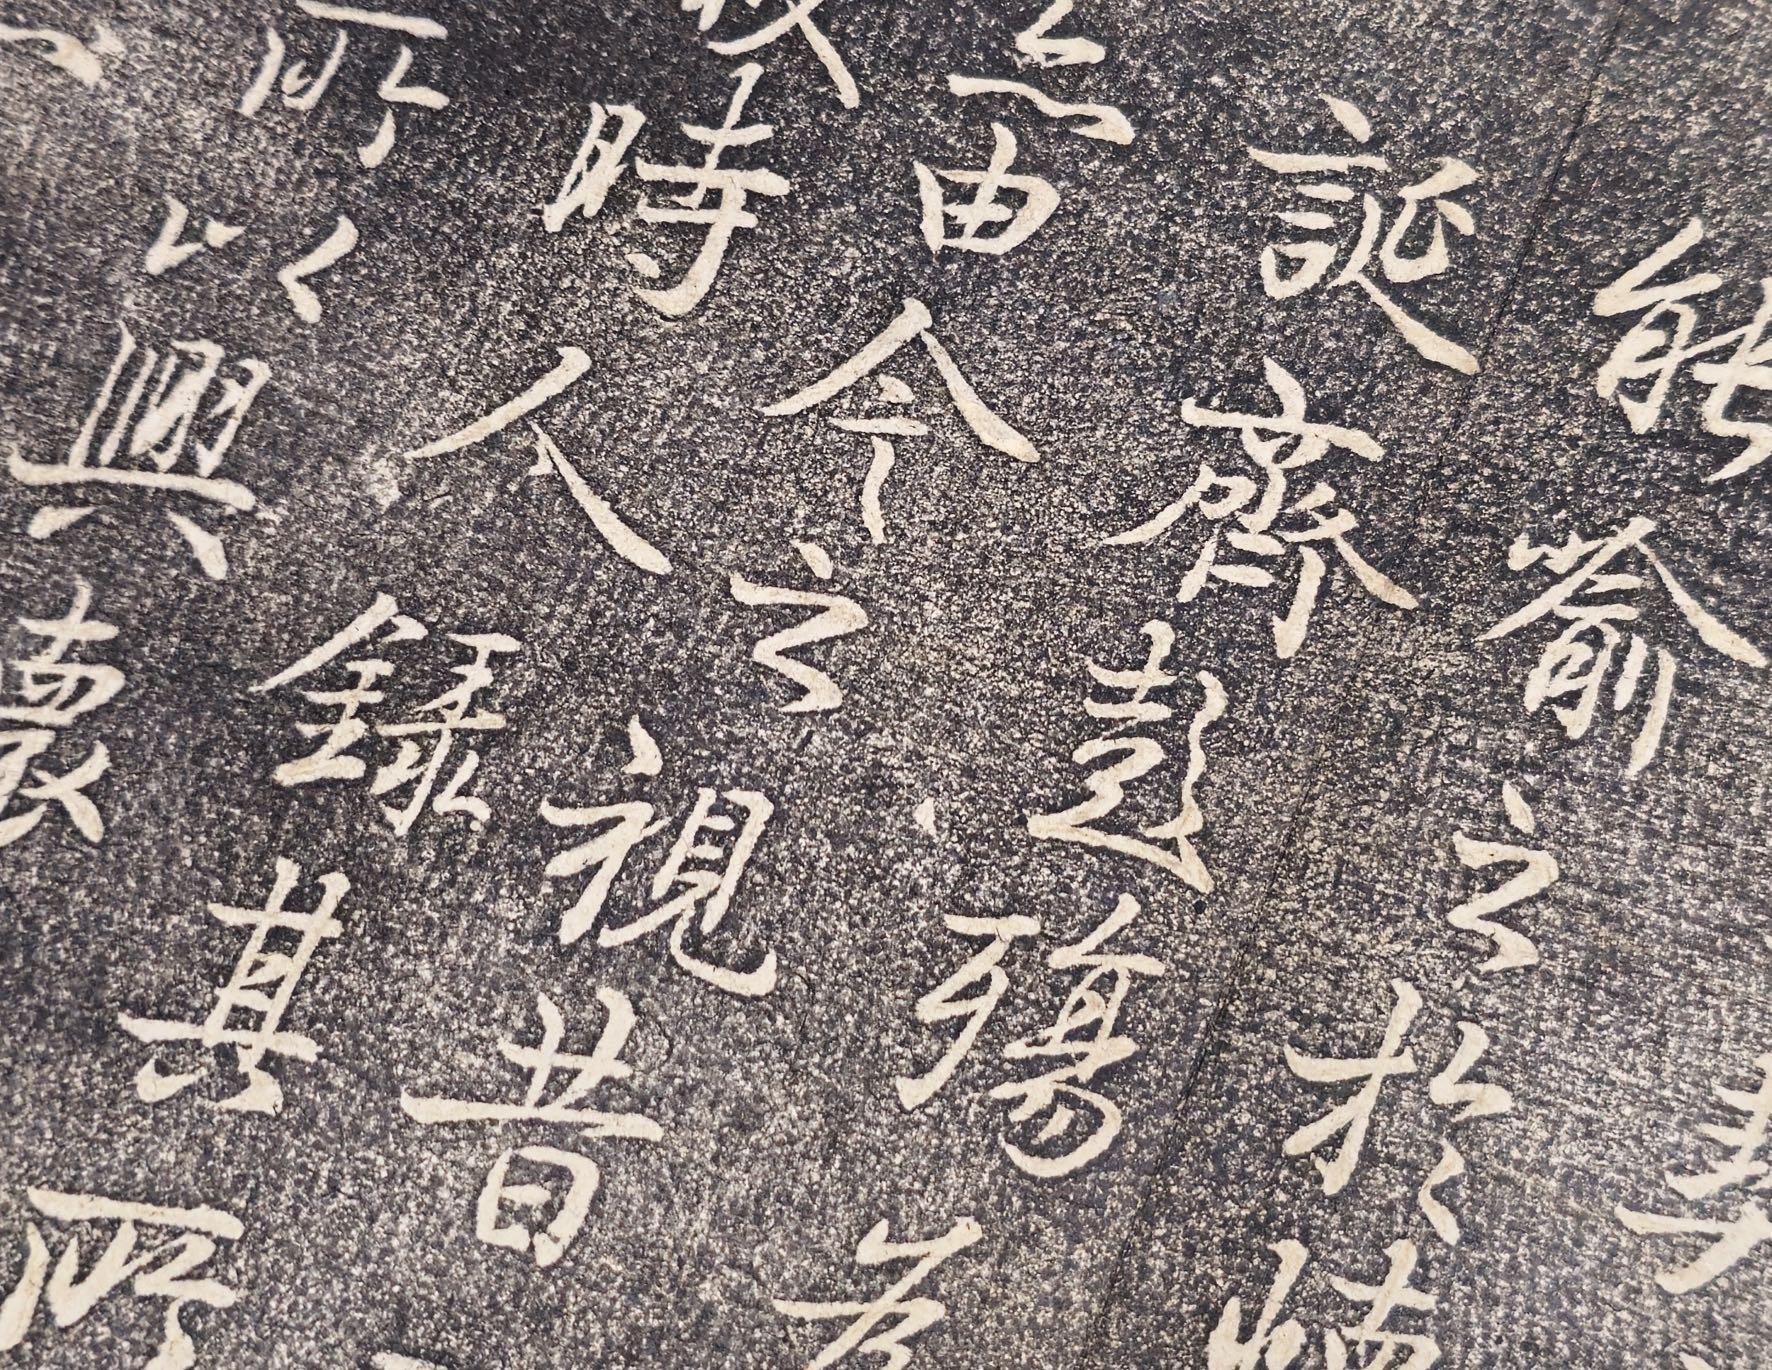 能喻之於
誕齊彭殤
亦由今之視昔
時人錄其所
所以興懷